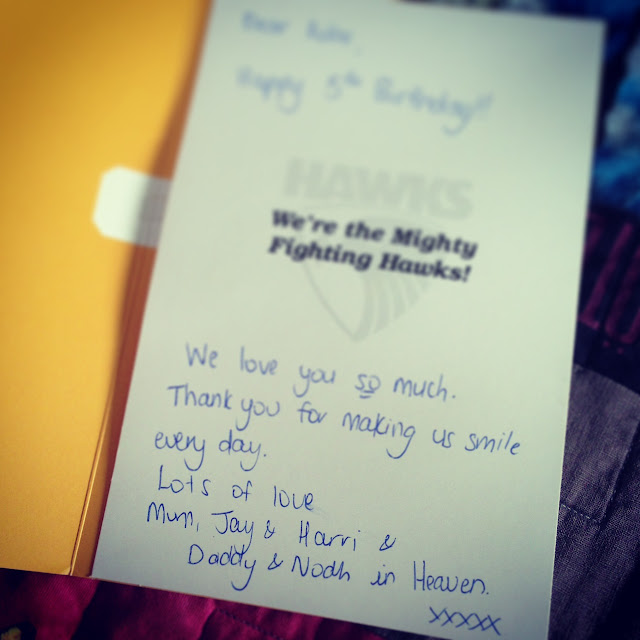 Dear
Happy 5th Birthday!!
HAWKS
We're the Mighty
Fighting Hawks!
We love you so much.
Thank you for making us smile
every day.
Lots of love
Mum, Jay & Harri &
Daddy & Noah in Heaven.
xxxxx